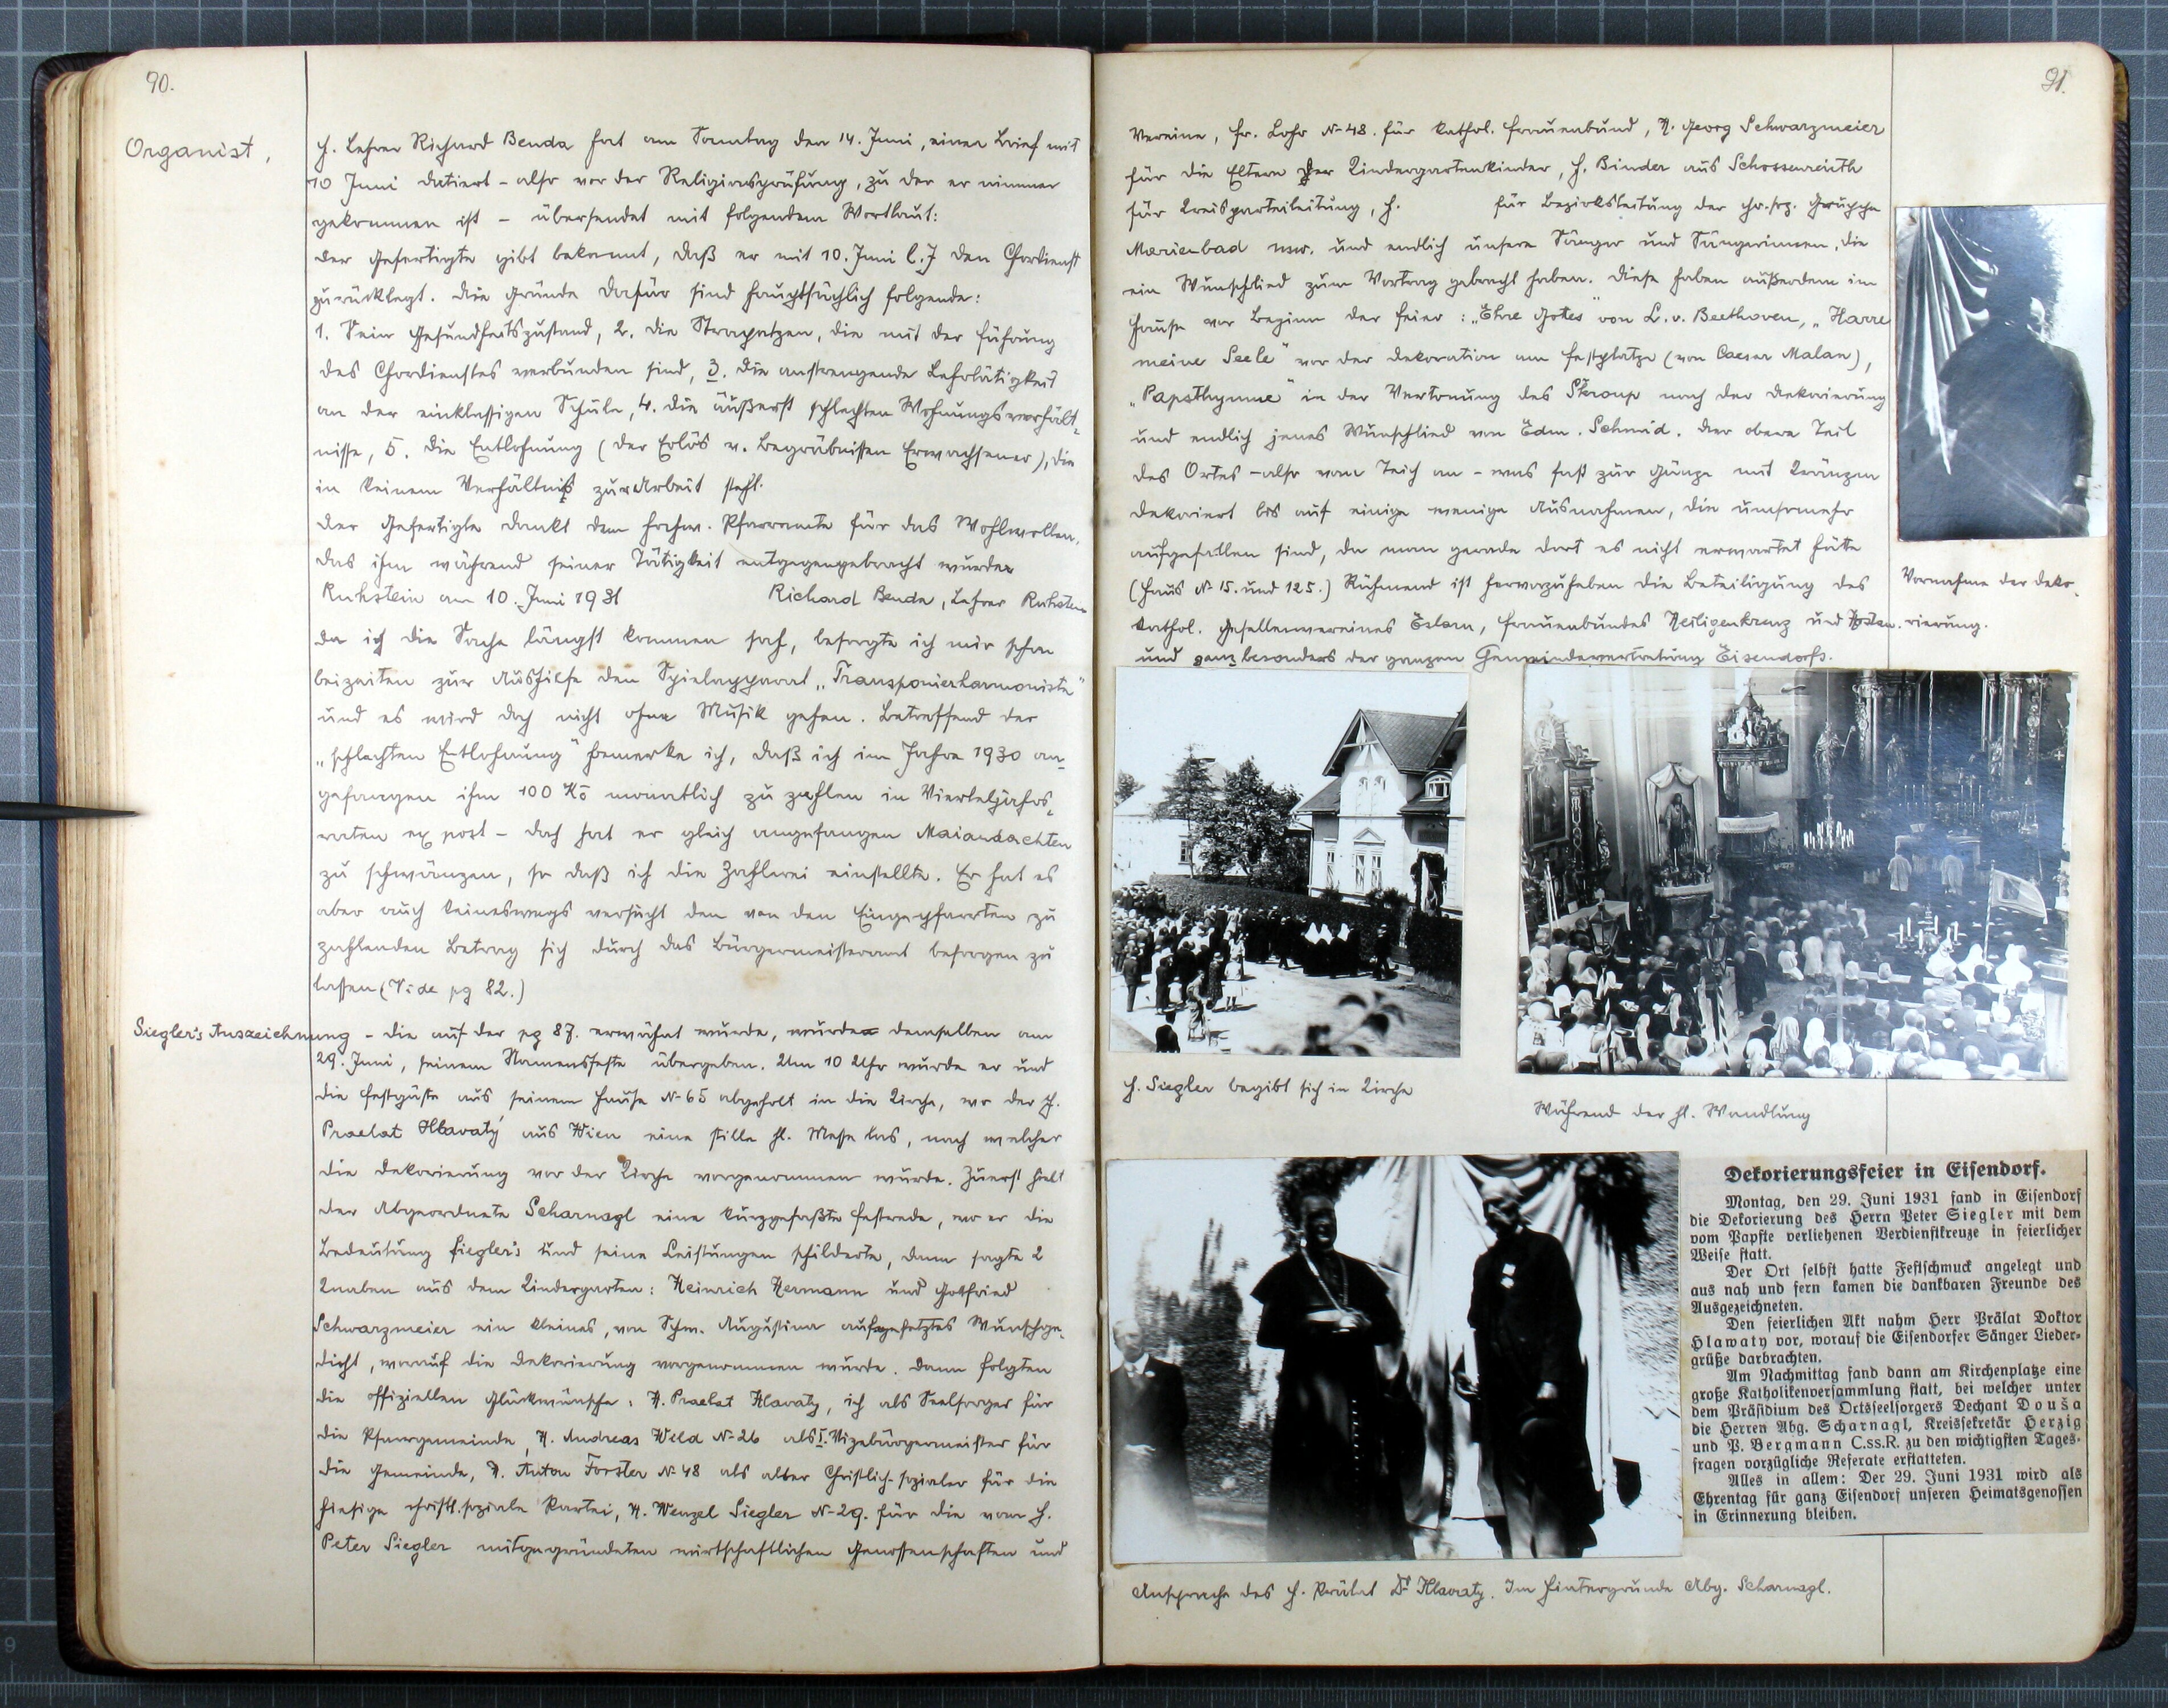 90.
Organist,
H. Lehrer Richard Benda hat am Sonntag den 14. Juni, einen Brief mit
10 Juni datiert - also vor der Religionsprüfung, zu der er nimmer
gekommen ist - übersendet mit folgendem Wortlaut:
Der Gefertigte gibt bekannt, daß er mit 10. Juni l. J den Chordienst
zurücklegt. Die Gründe dafür sind hauptsächlich folgende:
1. Sein Gesundheitszustand, 2. die Strapatzen, die mit der Führung
des Chordienstes verbunden sind, 3. die anstrengende Lehrtätigkeit
an der einklassigen Schule, 4. die äußerst schlechten Wohnungsverhält-
nisse, 5. die Entlohnung (der Erlös v. Begräbnissen Erwachsener), die
in keinem Verhältniß zur Arbeit steht.
Der Gefertigte dankt dem hochw. Pfarramte für das Wohlwollen,
das ihm während seiner Tätigkeit entgegengebracht wurde
Ruhstein am 10. Juni 1931 Richard Benda, Lehrer Ruhstein
Da ich die Sache längst kommen sah, besorgte ich mir schon
beizeiten zur Aushilfe den Spielapparat "Transponierharmonista"
und es wird doch nicht ohne Musik gehen. Betreffend der
"schlechten Entlohnung" bemerke ich, daß ich im Jahre 1930 an-
gefangen ihm 100 Kč monatlich zu zahlen in Vierteljahrs-
raten ex post - doch hat er gleich angefangen Maiandachten
zu schwänzen, so daß ich die Zahlerei einstellte. Er hat es
aber auch keineswegs versucht den von den Eingepfarrten zu
zahlenden Betrag sich durch das Bürgermeisteramt besorgen zu
lassen (Vide pg 82.)
Siegler's Auszeichnung - die auf der pg 87. erwähnt wurde, wurde demselben am
29. Juni, seinem Namensfeste übergeben. Um 10 Uhr wurde er und
die Festgäste aus seinem Hause N-65 abgeholt in die Kirche, wo der H.
Praelat Hlavatý aus Wien eine stille hl. Messe las, nach welcher
die Dekorierung vor der Kirche vorgenommen wurde. Zuerst hielt
der Abgeordnete Scharnagl eine kurzgefaßte Festrede, wo er die
Bedeutung Siegler's und seine Leistungen schilderte, dann sagte 2
Knaben aus dem Kindergarten: Heinrich Hermann und Gottfried
Schwarzmeier ein kleines, von Schw. Augustina aufgesetztes Wunschge-
dicht, worauf die Dekorierung vorgenommen wurde. Dann folgten
die offiziellen Glückwünsche: H. Praelat Hlavatý, ich als Seelsorger für
die Pfarrgemeinde, H. Andreas Weid N-26 als I. Vizebürgermeister für
die Gemeinde, H. Anton Forster N-48 als alter Christlich-sozialer für die
hiesige christl. soziale Partei, H. Wenzel Siegler N-29. für die vom H.
Peter Siegler mitgegründeten wirtschaftlichen Genossenschaften und
91.
Vereine, Fr. Lohr N-48. für kathol. Frauenbund, H. Georg Schwarzmeier
für die Eltern der Kindergartenkinder, H. Binder aus Schossenreith
für Kreisparteileitung, H. für Bezirksleitung der chr. soz. Gruppe
Marienbad usw. und endlich unsere Sänger und Sängerinnen, die
ein Wunschlied zum Vortrag gebracht haben. Diese haben außerdem im
Hause vor Beginn der Feier: "Ehre Gotes" von L. v. Beethoven, "Harre
meine Seele" vor der Dekoration am Festplatze (von Caesar Malan),
"Papsthymne" in der Vertonung des Skroup nach der Dekorierung
und endlich jenes Wunschlied von Edm. Schmid. Der obere Teil
des Ortes - also vom Teich an - war fast zur Gänze mit Kränzen
dekoriert bis auf einige wenige Ausnahmen, die umsomehr
aufgefallen sind, da man gerade dort es nicht erwartet hätte
(Haus N-15. und 125.) Rühmend ist hervorzuheben die Beteiligung des
kathol. Gesellenvereines Eslarn, Frauenbundes Heiligenkreuz und
und ganz besonders der ganzen Gemeindevertretung Eisendorfs.
Vornahme der Deko-
rierung.
H. Siegler begibt sich in Kirche
Während der hl. Wandlung
Dekorierungsfeier in Eisendorf.
Montag, den 29. Juni 1931 fand in Eisendorf
die Dekorierung des Herrn Peter Siegler mit dem
vom Papste verliehenen Verdienstkreuze in feierlicher
Weise statt.
Der Ort selbst hatte Festschmuck angelegt und
aus nah und fern kamen die dankbaren Freunde des
Ausgezeichneten.
Den feierlichen Akt nahm Herr Prälat Doktor
Hlawaty vor, worauf die Eisendorfer Sänger Lieder-
grüße darbrachten.
Am Nachmittag fand dann am Kirchenplatze eine
große Katholikenversammlung statt, bei welcher unter
dem Präsidium des Ortsseelsorgers Dechant Douša
die Herren Abg. Scharnagl, Kreissekretär Herzig
und P. Bergmann C.ss.R. zu den wichtigsten Tages-
fragen vorzügliche Referate erstatteten.
Alles in allem: Der 29. Juni 1931 wird als
Ehrentag für ganz Eisendorf unseren Heimatsgenossen
in Erinnerung bleiben.
Ansprache des H. Prälat Dr Hlavatý. Im Hintergrunde Abg. Scharnagl.
9